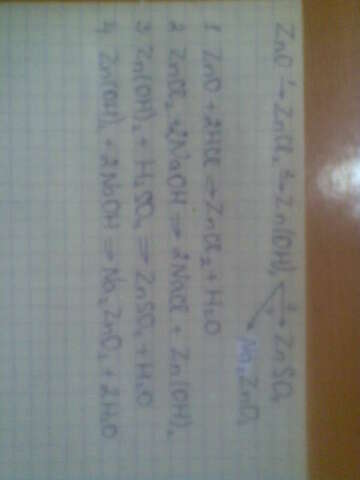 ZnO →¹ ZnCl₂ →² Zn(OH)₂ →³ ZnSO₄
→⁴ Na₂ZnO₂
1 ZnO + 2HCl ⇒ ZnCl₂ + H₂O
2 ZnCl₂ + 2NaOH ⇒ 2NaCl + Zn(OH)₂
3 Zn(OH)₂ + H₂SO₄ ⇒ ZnSO₄ + H₂O
4 Zn(OH)₂ + 2NaOH ⇒ Na₂ZnO₂ + 2H₂O